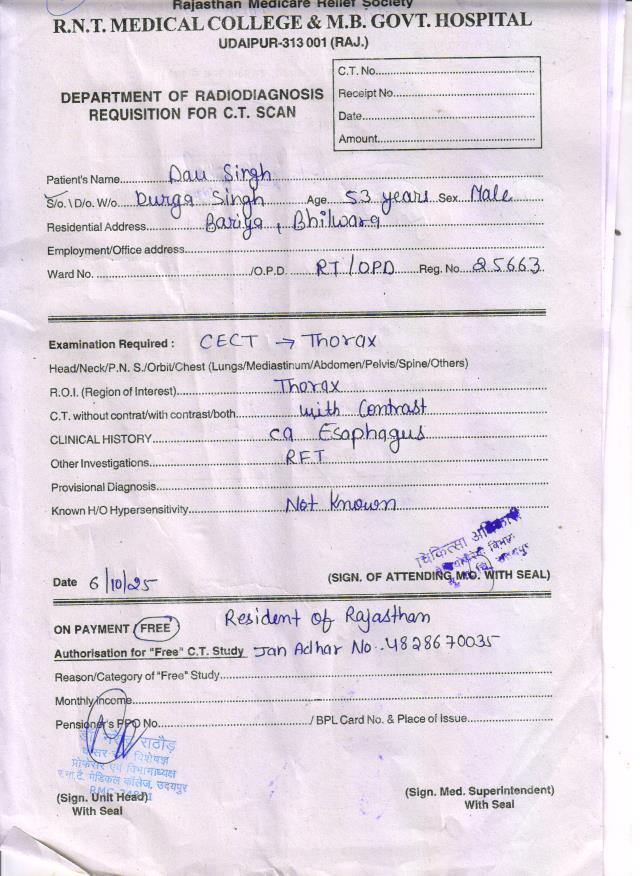 Rajasthan Medicare Relief Society
R.N.T. MEDICAL COLLEGE & M.B. GOVT. HOSPITAL
UDAIPUR-313 001 (RAJ.)
DEPARTMENT OF RADIODIAGNOSIS
REQUISITION FOR C.T. SCAN
C.T. No.
Receipt No.
Date
Amount
Patient's Name Dau Singh
S/o. \ D/o. W/o Durga Singh Age 53 years Sex Male
Residential Address Bariya, Bhilwara
Employment/Office address
Ward No. /O.P.D. RT/OPD Reg. No. 25663
Examination Required : CECT → Thorax
Head/Neck/P.N. S./Orbit/Chest (Lungs/Mediastinum/Abdomen/Pelvis/Spine/Others)
R.O.I. (Region of Interest) Thorax
C.T. without contrat/with contrast/both with Contrast
CLINICAL HISTORY ca Esophagus
Other Investigations RFT
Provisional Diagnosis
Known H/O Hypersensitivity Not known
चिकित्सा अधिकारी
Date 6/10/25
(SIGN. OF ATTENDING M.O. WITH SEAL)
ON PAYMENT / FREE Resident of Rajasthan
Authorisation for "Free" C.T. Study Jan Adhar No. 4828670035
Reason/Category of "Free" Study
Monthly Income
Pensioner's PPO No. / BPL Card No. & Place of Issue
राठौड़
विशेषज्ञ
प्रोफेसर एवं विभागाध्यक्ष
र.ना.टै. मेडिकल कॉलेज, उदयपुर
(Sign. Unit Head)
With Seal
(Sign. Med. Superintendent)
With Seal